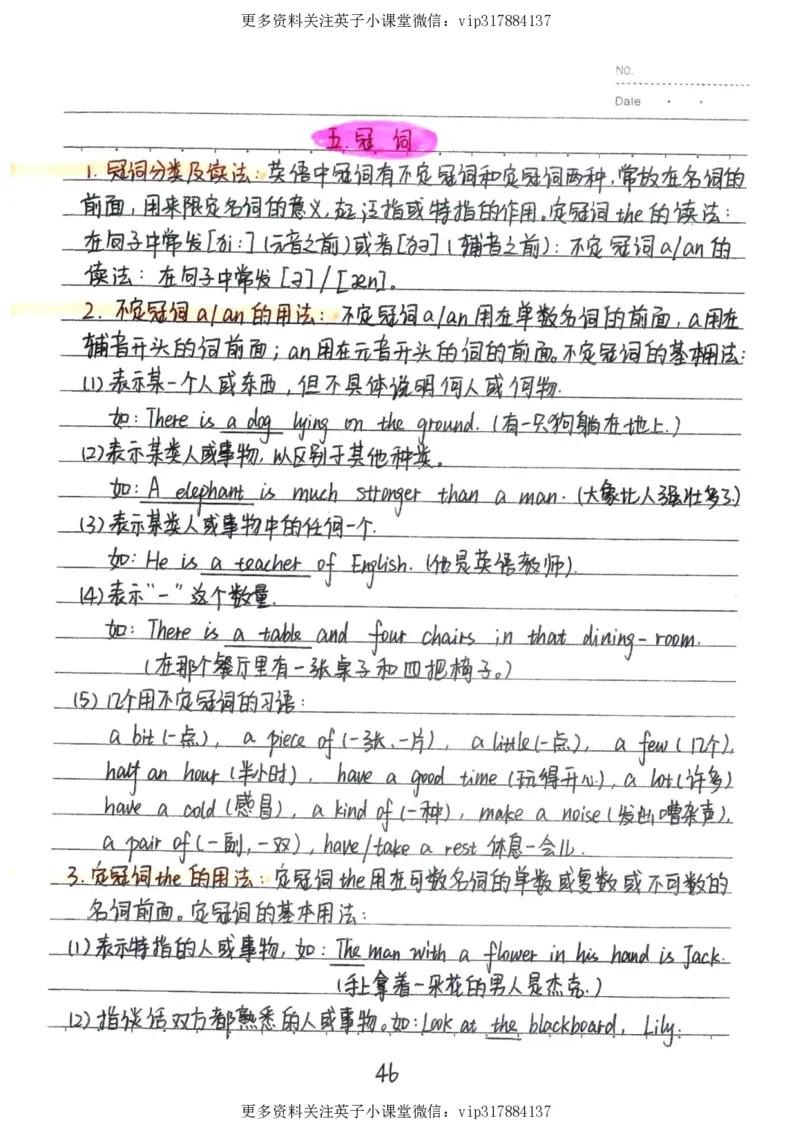 更多资料关注英子小课堂微信：vip317884137
NO.
Date
五.冠 词
1. 冠词分类及读法：英语中冠词有不定冠词和定冠词两种，常放在名词的
前面，用来限定名词的意义，起泛指或特指的作用。定冠词the的读法：
在句子中常发[ði:](元音之前)或者[ðə](辅音之前)：不定冠词a/an的
读法：在句子中常发[ə]/[æn]。
2. 不定冠词a/an的用法：不定冠词a/an用在单数名词的前面，a用在
辅音开头的词前面；an用在元音开头的词的前面。不定冠词的基本用法：
(1)表示某一个人或东西，但不具体说明何人或何物.
如：There is a dog lying on the ground.(有一只狗躺在地上.)
(2)表示某类人或事物，以区别于其他种类。
如：A elephant is much stronger than a man.(大象比人强壮多了.)
(3)表示某类人或事物中的任何一个.
如：He is a teacher of English.(他是英语教师).
(4)表示“一”这个数量.
如：There is a table and four chairs in that dining-room.
(在那个餐厅里有一张桌子和四把椅子。)
(5)几个用不定冠词的习语：
a bit(一点)，a piece of(一张、一片)，a little(一点)，a few(几个)，
half an hour(半小时)，have a good time(玩得开心)，a lot(许多)
have a cold(感冒)，a kind of(一种)，make a noise(发出嘈杂声)，
a pair of(一副，一双)，have/take a rest 休息一会儿.
3. 定冠词the的用法：定冠词the用在可数名词的单数或复数或不可数的
名词前面。定冠词的基本用法：
(1)表示特指的人或事物，如：The man with a flower in his hand is Jack.
(手上拿着一朵花的男人是杰克.)
(2)指谈话双方都熟悉的人或事物。如：Look at the blackboard, Lily.
46
更多资料关注英子小课堂微信：vip317884137